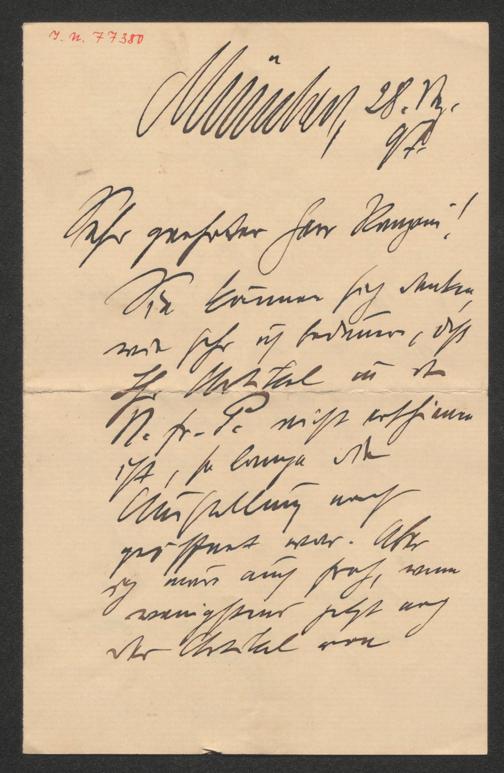 I. N. 77380
München, 28. V.
97.
Sehr geehrter Herr Ranzoni!
Sie können sich denken,
wie sehr ich bedaure, daß
Ihr Artikel in der
N. fr. P. nicht erschienen
ist, so lange die
Ausstellung noch
geöffnet war. Aber
ich wäre auch froh, wenn
wenigstens jetzt noch
der Artikel von